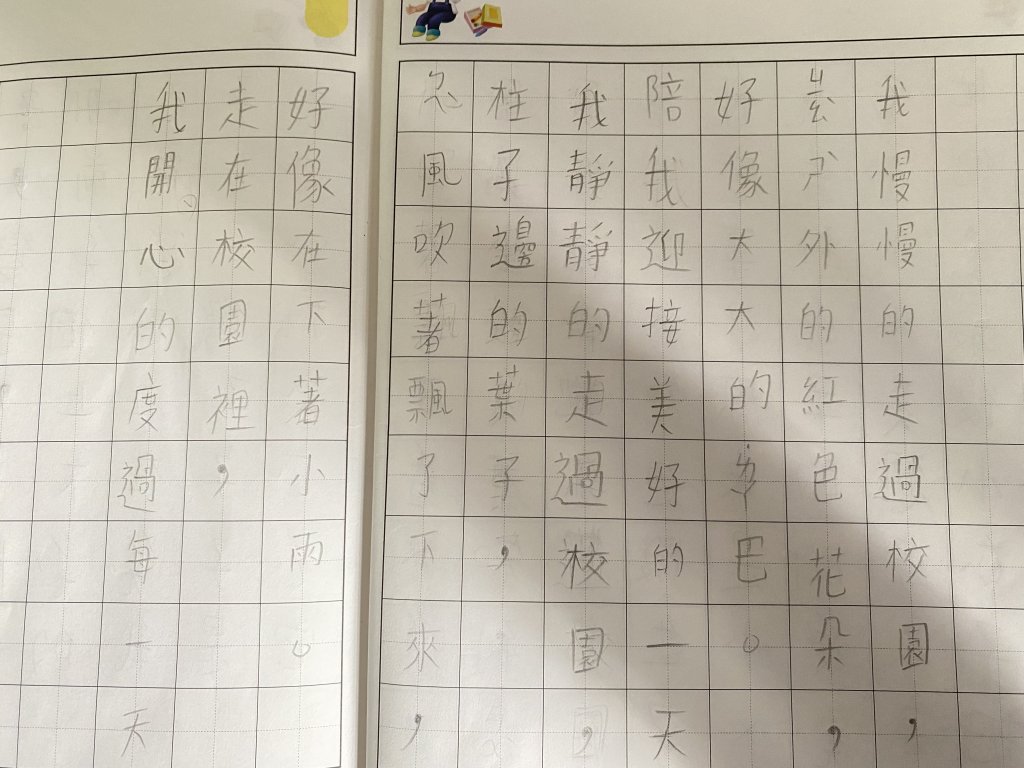 我慢慢的走過校園，
外的紅色花朵，
好像大大的巴。
陪我迎接美好的一天
我靜靜的走過校園，
柱子邊的葉子，
風吹著飄了下來，
好像在下著小雨。
走在校園裡，
我開心的度過每一天